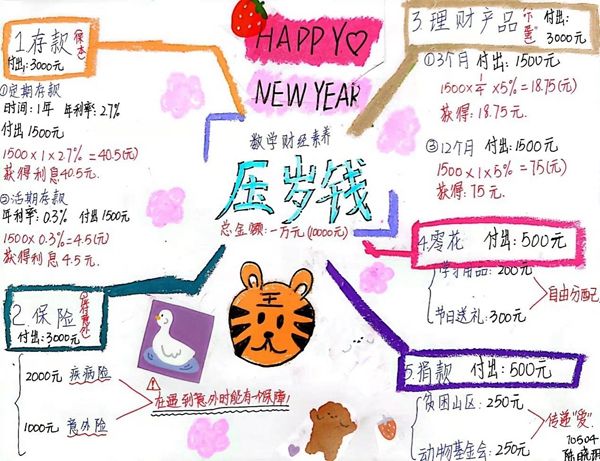 HAPPY♡
NEW YEAR
数学财经素养
压岁钱
总金额:一万元(10000元)
1.存款
付出:3000元
①定期存款
时间:1年 年利率:2.7%
付出1500元
1500×1×2.7%=40.5(元)
获得利息40.5元.
②活期存款
年利率:0.3% 付出1500元
1500×0.3%=4.5(元)
获得利息4.5元.
2.保险
付出:3000元
2000元 疾病险
1000元 意外险
在遇到意外时能有一份保障!
3.理财产品
付出:
3000元
①3个月 付出:1500元
1500×1/4×5%=18.75(元)
获得:18.75元.
②12个月 付出:1500元
1500×1×5%=75(元)
获得:75元.
4.零花 付出:500元
学习用品:200元
节日送礼:300元
自由分配
5.捐款 付出:500元
贫困山区:250元
动物基金会:250元
传递"爱".
70504